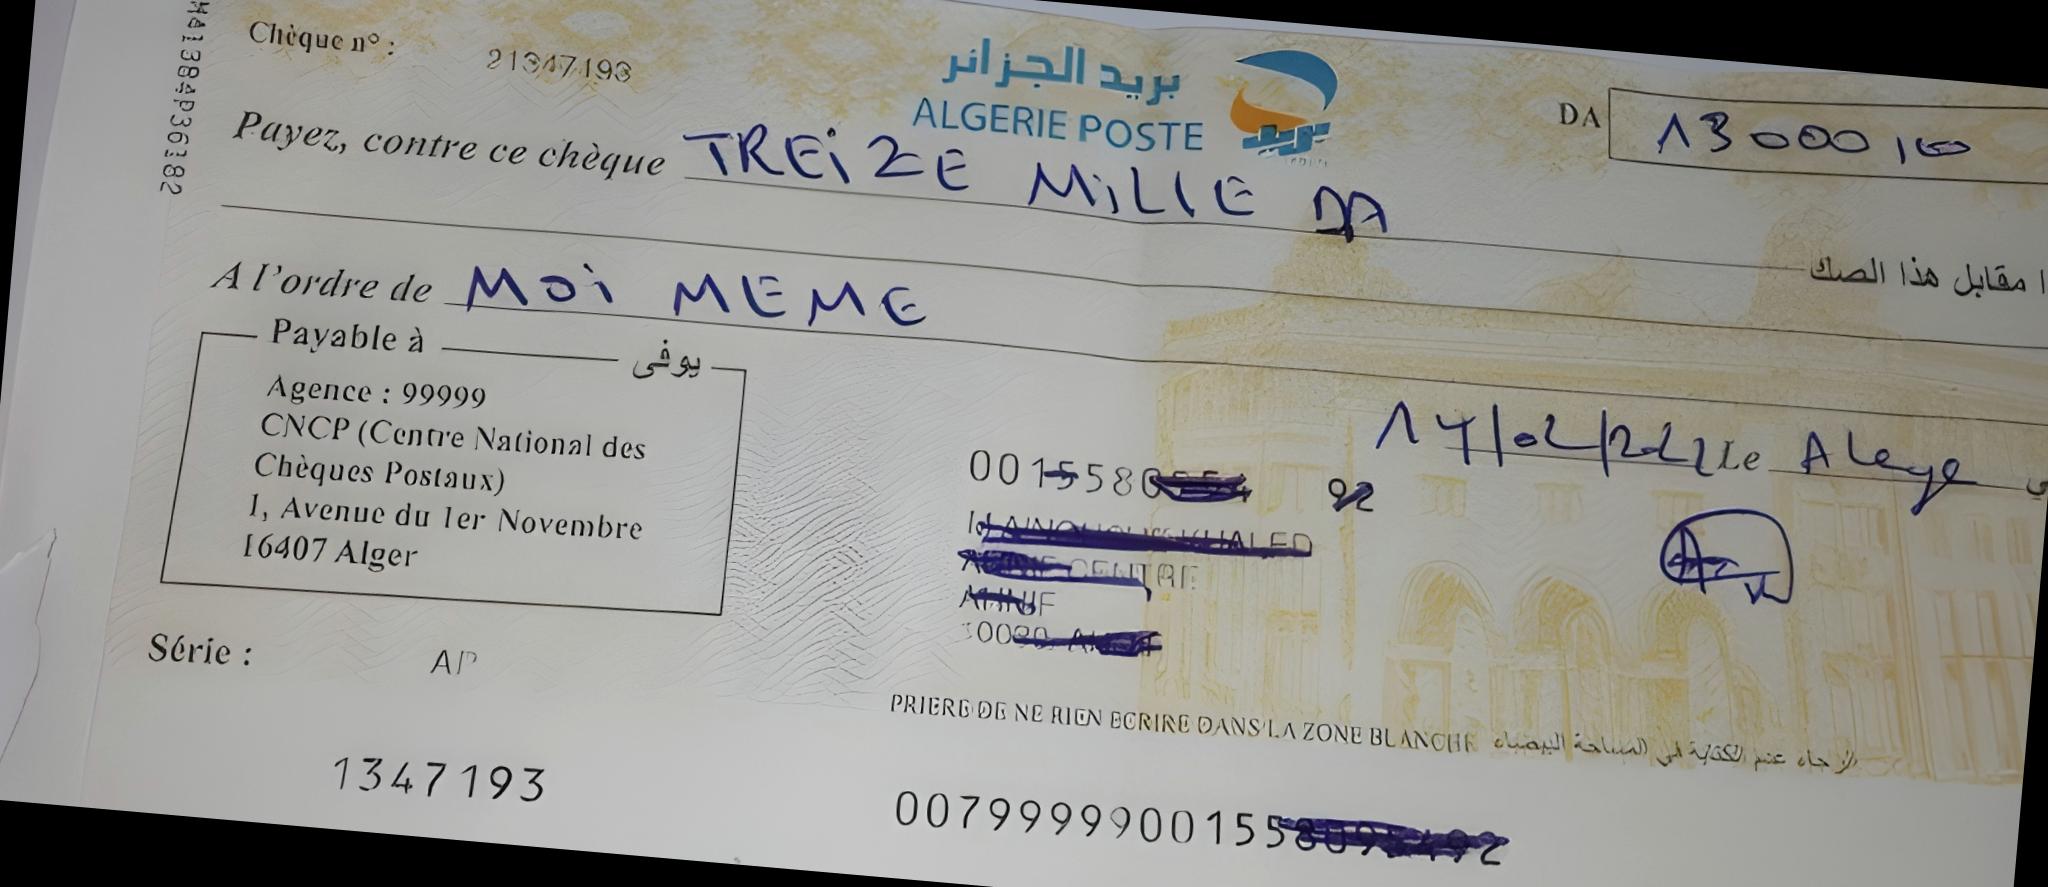 Chèque n° : 21347193
بريد الجزائر
ALGERIE POSTE
DA 13000,00
Payez, contre ce chèque TREiZE MiLLE DA
مقابل هذا الصك
A l'ordre de MOi MEME
Payable à يوفى
Agence : 99999
CNCP (Centre National des
Chèques Postaux)
1, Avenue du 1er Novembre
16407 Alger
14/02/2022 Le
001558
92
CENTRE
Série : AP
PRIERE DE NE RIEN ECRIRE DANS LA ZONE BLANCHE الرجاء عدم الكتابة في المساحة البيضاء
1347193
0079999900155